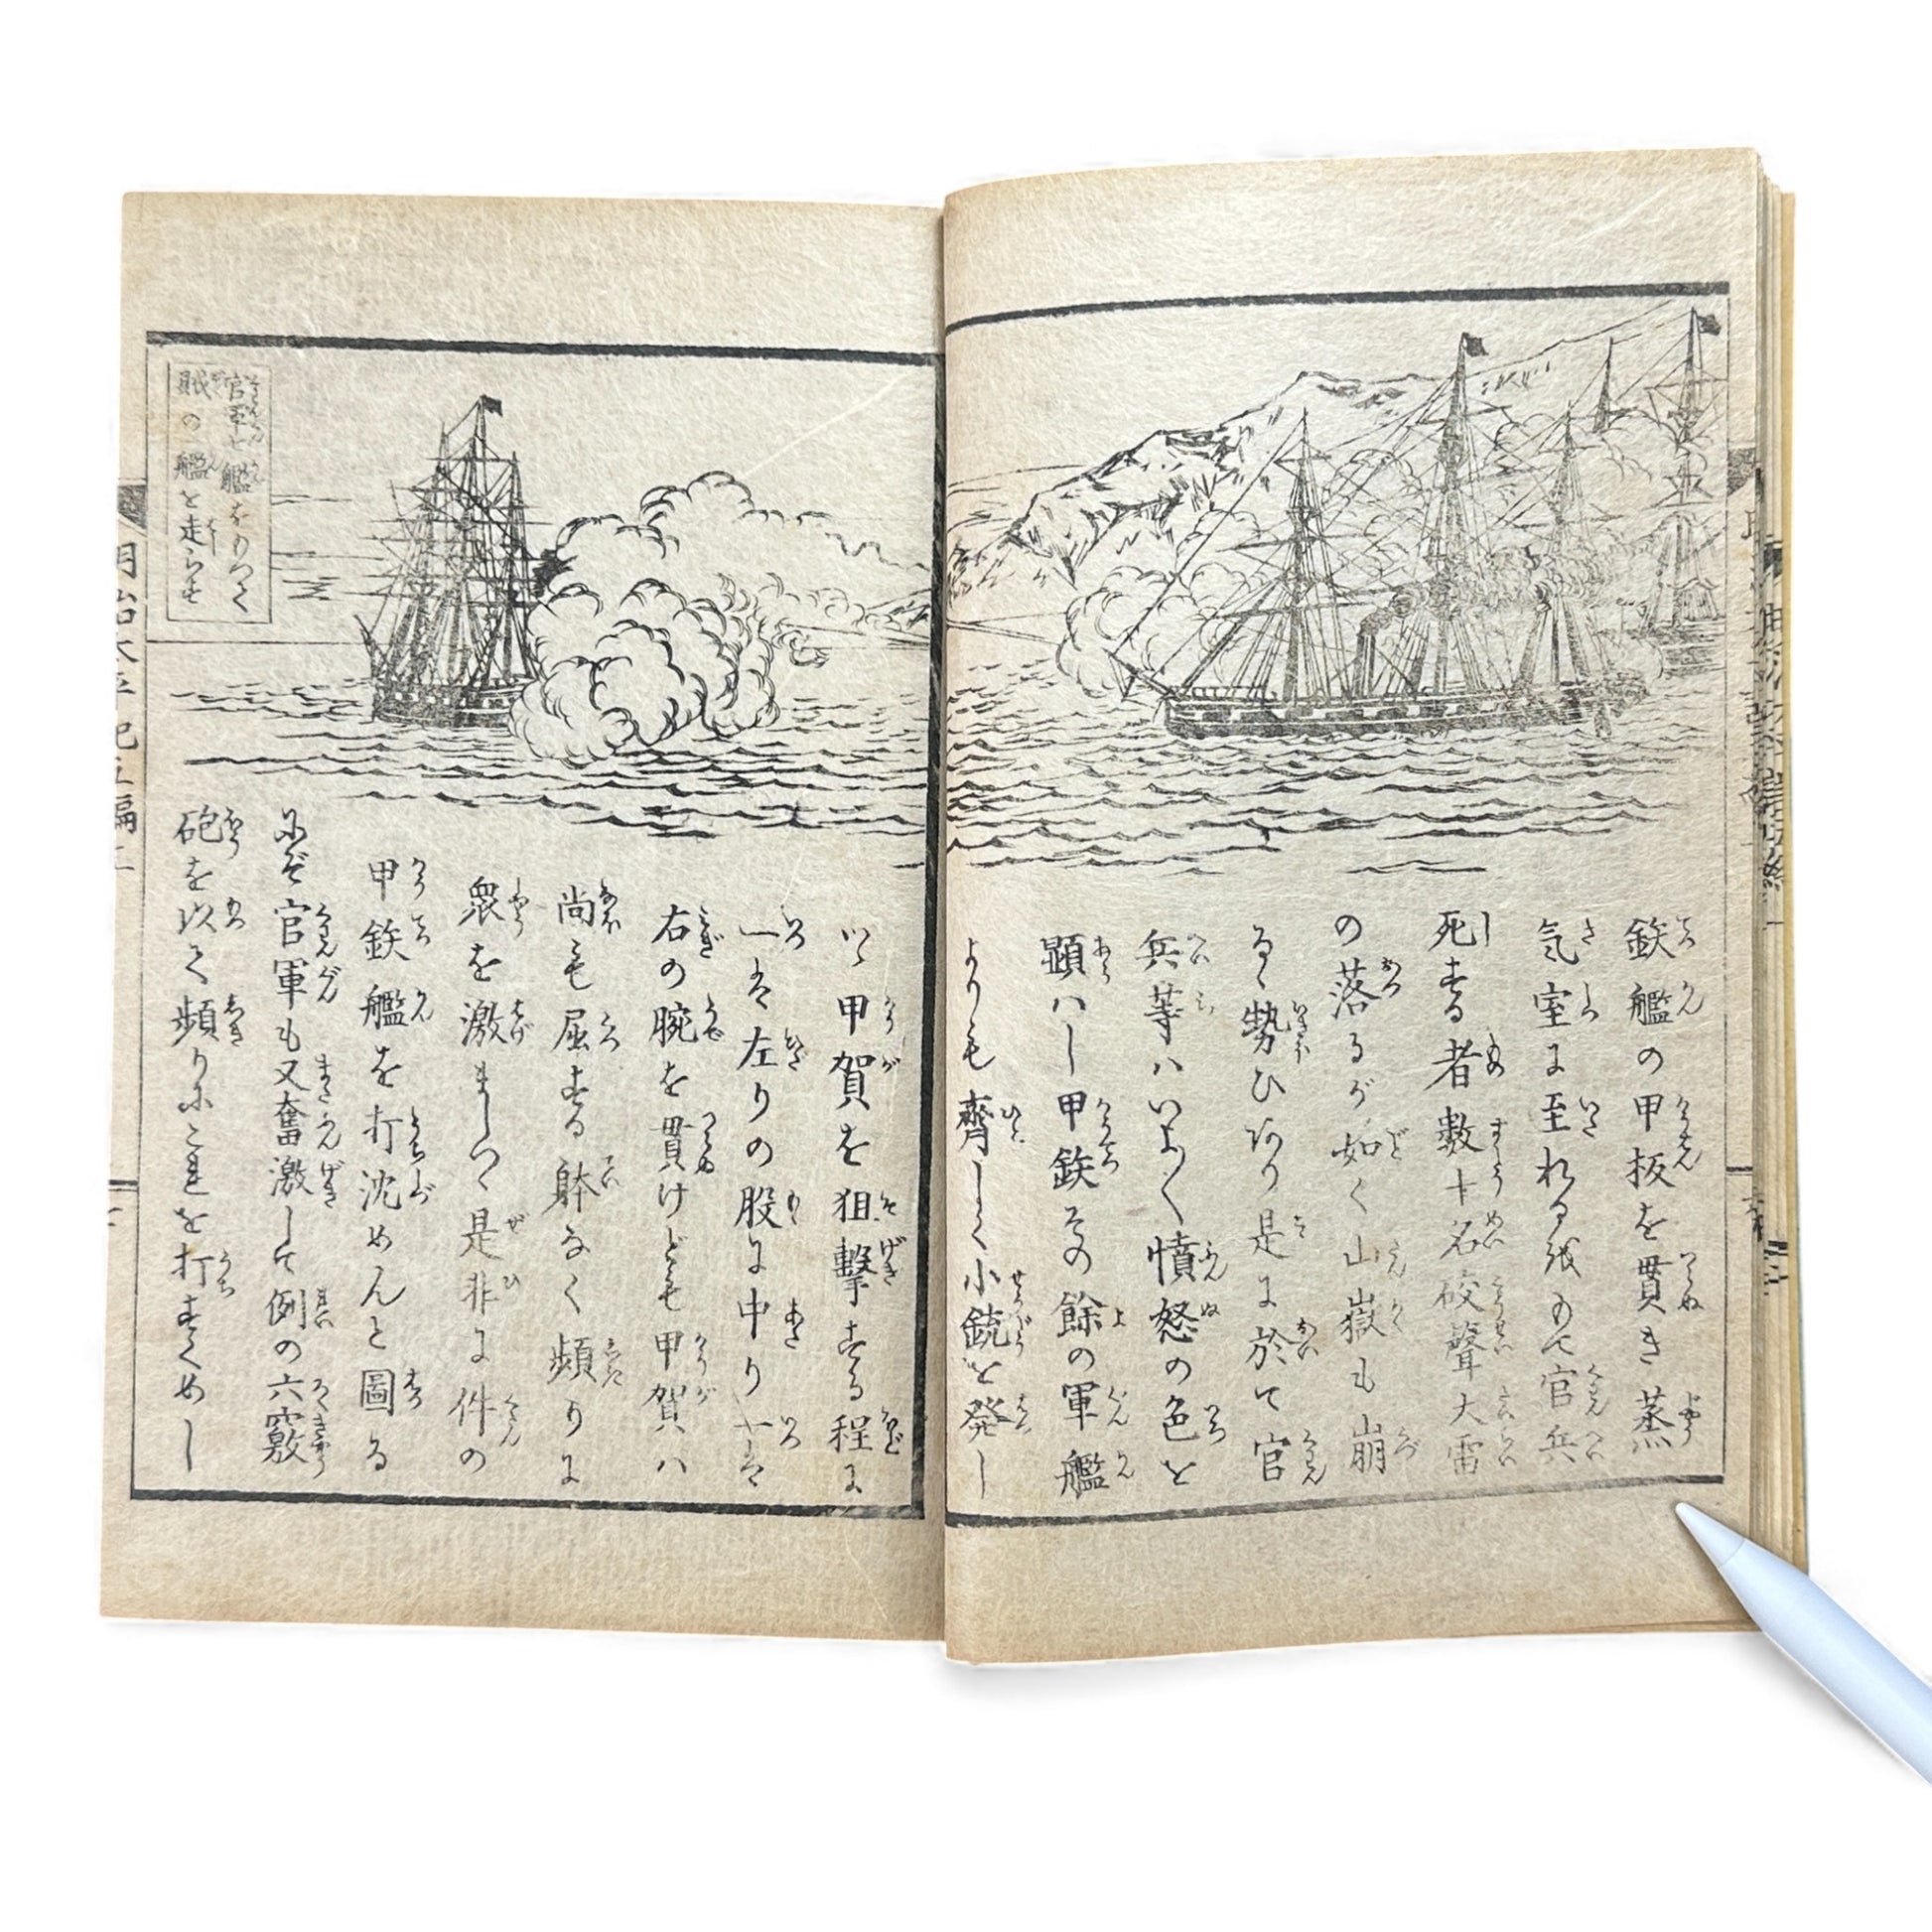 鉄艦の甲板を貫き蒸
気室に至れる我もて官兵
死する者数十名砲聲大雷
の落るが如く山嶽も崩
るゝ勢ひなり是に於て官
兵等ハいよ〳〵憤怒の色を
顕ハし甲鉄その餘の軍艦
よりも齊しく小銃を発し
つゝ甲賀を狙撃する程に
一は左りの股に中り一は
右の腕を貫けども甲賀ハ
尚も屈する躰なく頻りに
衆を激ましつゝ是非に件の
甲鉄艦を打沈めんと圖る
にぞ官軍も又奮激して例の六竅
砲を以て頻りにこれを打すくめし
官軍の艦をもつて
賊の艦を走らす
明治太平記五編二